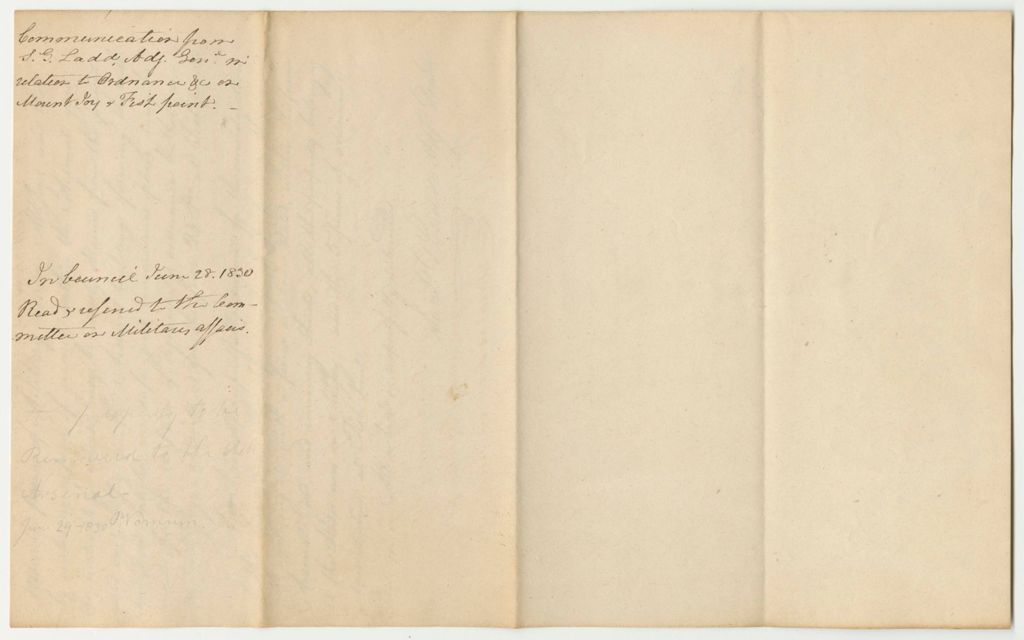 Communication from
S. G. Ladd, Adj. Genl. in
relation to Ordnance &c on
Mount Joy & Fish point. -
In Council June 28. 1830
Read & referred to the Com-
mittee on Military affairs.
property to be
Removed to the
Arsenal -
June 29 - 1830